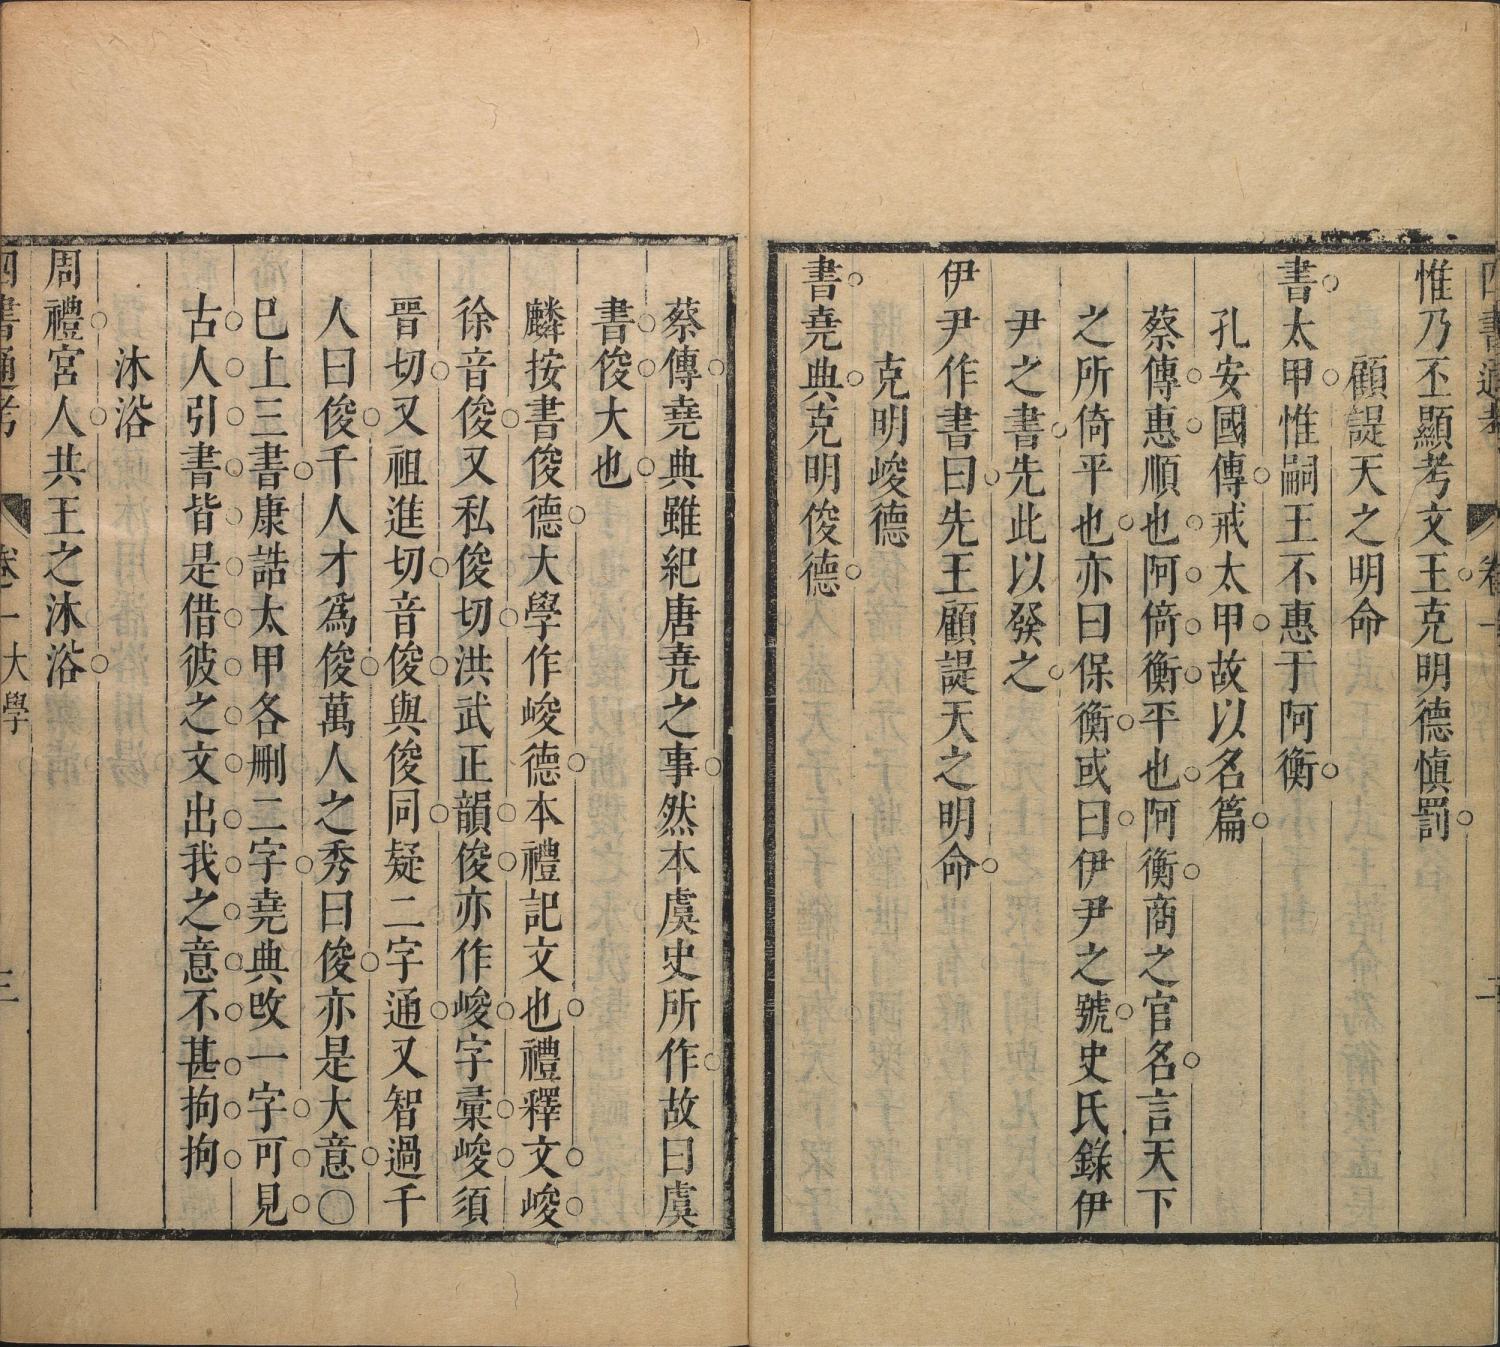 四書通考 卷一
惟乃丕顯考文王克明德慎罰
顧諟天之明命
書太甲惟嗣王不惠于阿衡
孔安國傳戒太甲故以名篇
蔡傳惠順也阿倚衡平也阿衡商之官名言天下
之所倚平也亦曰保衡或曰伊尹之號史氏錄伊
尹之書先此以發之
伊尹作書曰先王顧諟天之明命
克明峻德
書堯典克明俊德
蔡傳堯典雖紀唐堯之事然本虞史所作故曰虞
書俊大也
麟按書俊德大學作峻德本禮記文也禮釋文峻
徐音俊又私俊切洪武正韻俊亦作峻字彙峻須
晉切又祖進切音俊與俊同疑二字通又智過千
人曰俊千人才為俊萬人之秀曰俊亦是大意〇
巳上三書康誥太甲各刪二字堯典改一字可見
古人引書皆是借彼之文出我之意不甚拘拘
沐浴
周禮宮人共王之沐浴
四書通考 卷一 大學 三